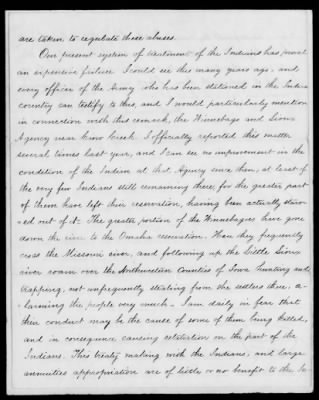 are taken to regulate these abuses.
Our present system of treatment of the Indians has proved
an expensive failure. I could see this many years ago, and
every officer of the Army who has been stationed in the Indian
country can testify to this, and I would particularly mention
in connection with this remark, the Winnebago and Sioux
Agency near Crow Creek. I officially reported this matter
several times last year, and I can see no improvement in the
condition of the Indian at that Agency since then, at least of
the very few Indians still remaining there, for the greater part
of them have left their reservation, having been actually starv-
ed out of it. The greater portion of the Winnebagoes have gone
down the river to the Omaha reservation. Here they frequently
cross the Missouri river, and following up the Little Sioux
river roam over the Northwestern Counties of Iowa hunting and
trapping, not unfrequently stealing from the settlers there, a-
larming the people very much. I am daily in fear that
their conduct may be the cause of some of them being killed,
and in consequence causing retaliation on the part of the
Indians. This treaty making with the Indians, and large
annuities appropriation are of little or no benefit to the In-